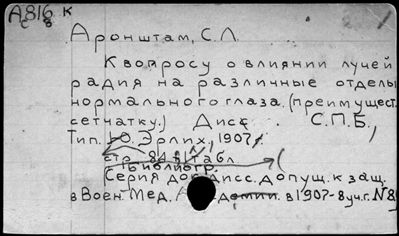 А816 к
с 8
Аронштам, С.Л.
К вопросу о влиянии лучей
радия на различные отделы
нормального глаза. (преимущест.
сетчатку.) Дисс. С.П.Б.,
Тип. Ю. Эрлих, 1907.
стр. 84 1 табл
библиогр.
Серия док. дисс. допущ. к защ.
в Воен. Мед. в 1907-8 уч. г. №8